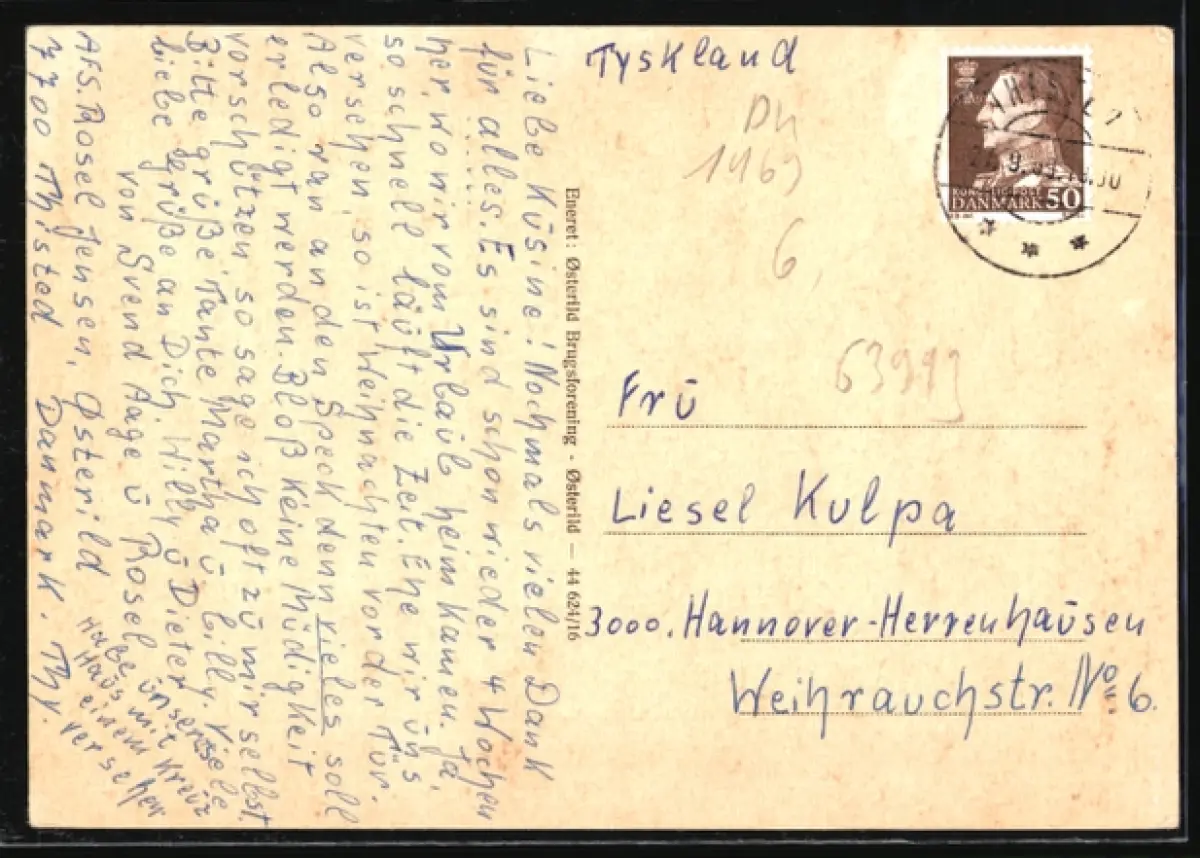 Liebe Kŭsine! Nochmals vielen Dank
für alles. Es sind schon wieder 4 Wochen
her, wo wir vom Urlaŭb heim kamen. Ja,
so schnell läŭft die Zeit. Ehe wir ŭns
versehen, so ist Weihnachten vor der Tür.
Also ran an den Speck denn vieles soll
erledigt werden. Bloß keine Müdigkeit
vorschützen so sage ich oft zŭ mir selbst.
Bitte grüße Tante Martha ŭ Lilly. Viele
liebe Grüße an Dich, Willy ŭ Dieter
von Svend Aage ŭ Rosel
Afs. Rosel Jensen, Østerild
7700 Thisted Danmark. Thy.
Habe ŭnser
Haŭs mit
einem Kreŭz
versehen
Eneret: Østerild Brugsforening - Østerild — 44 624/16
Tyskland
6,
63999
KONGELIG POST
DANMARK 50
Frŭ
Liesel Kulpa
3000. Hannover-Herrenhaŭsen
Weihrauchstr. No. 6.